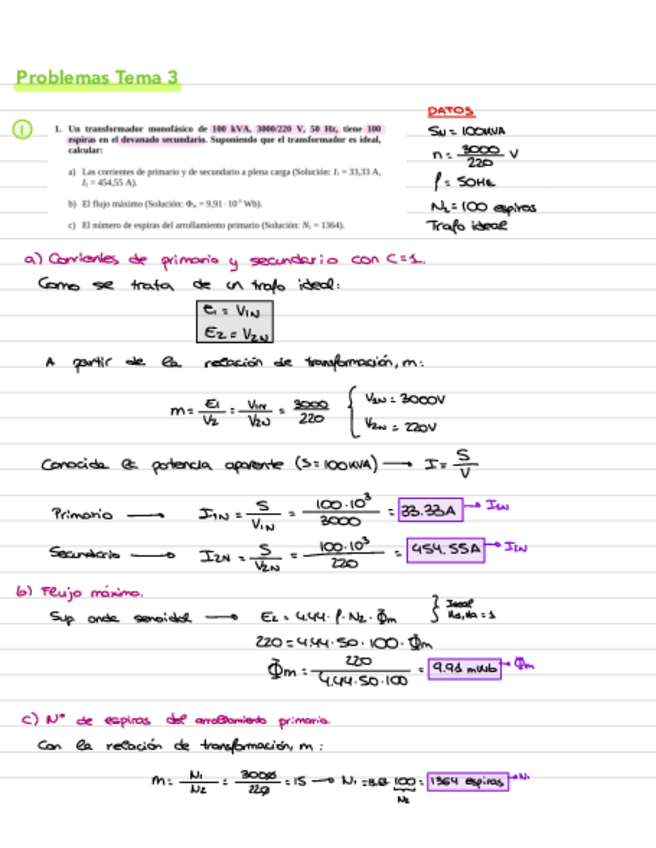 Problemas Tema 3
1
1. Un transformador monofásico de 100 kVA, 3000/220 V, 50 Hz, tiene 100
espiras en el devanado secundario. Suponiendo que el transformador es ideal,
calcular:
a) Las corrientes de primario y de secundario a plena carga (Solución: I₁ = 33,33 A,
I₂ = 454,55 A).
b) El flujo máximo (Solución: Φₘ = 9,91 · 10⁻³ Wb).
c) El número de espiras del arrollamiento primario (Solución: N₁ = 1364).
DATOS
SN = 100KVA
n = 3000/220 V
f = 50Hz
N2 = 100 espiras
Trafo ideal
a) Corrientes de primario y secundario con C=1.
Como se trata de un trafo ideal:
E1 = V1N
E2 = V2N
A partir de la relación de transformación, m:
m = E1/V2 = V1N/V2N = 3000/220 { V1N = 3000V
V2N = 220V
Conocida la potencia aparente (S=100KVA) → I = S/V
Primario → I1N = S/V1N = 100·10³/3000 = 33.33A → I1N
Secundario → I2N = S/V2N = 100·10³/220 = 454.55A → I2N
b) Flujo máximo.
Sup onda senoidal → E2 = 4.44 · f · N2 · Φm } Ideal
220 = 4.44 · 50 · 100 · Φm
Φm = 220/4.44·50·100 = 9.91 mWb → Φm
c) Nº de espiras del arrollamiento primario.
Con la relación de transformación, m:
m = N1/N2 = 3000/220 = 15 → N1 = 100 = 1364 espiras → N1
N2